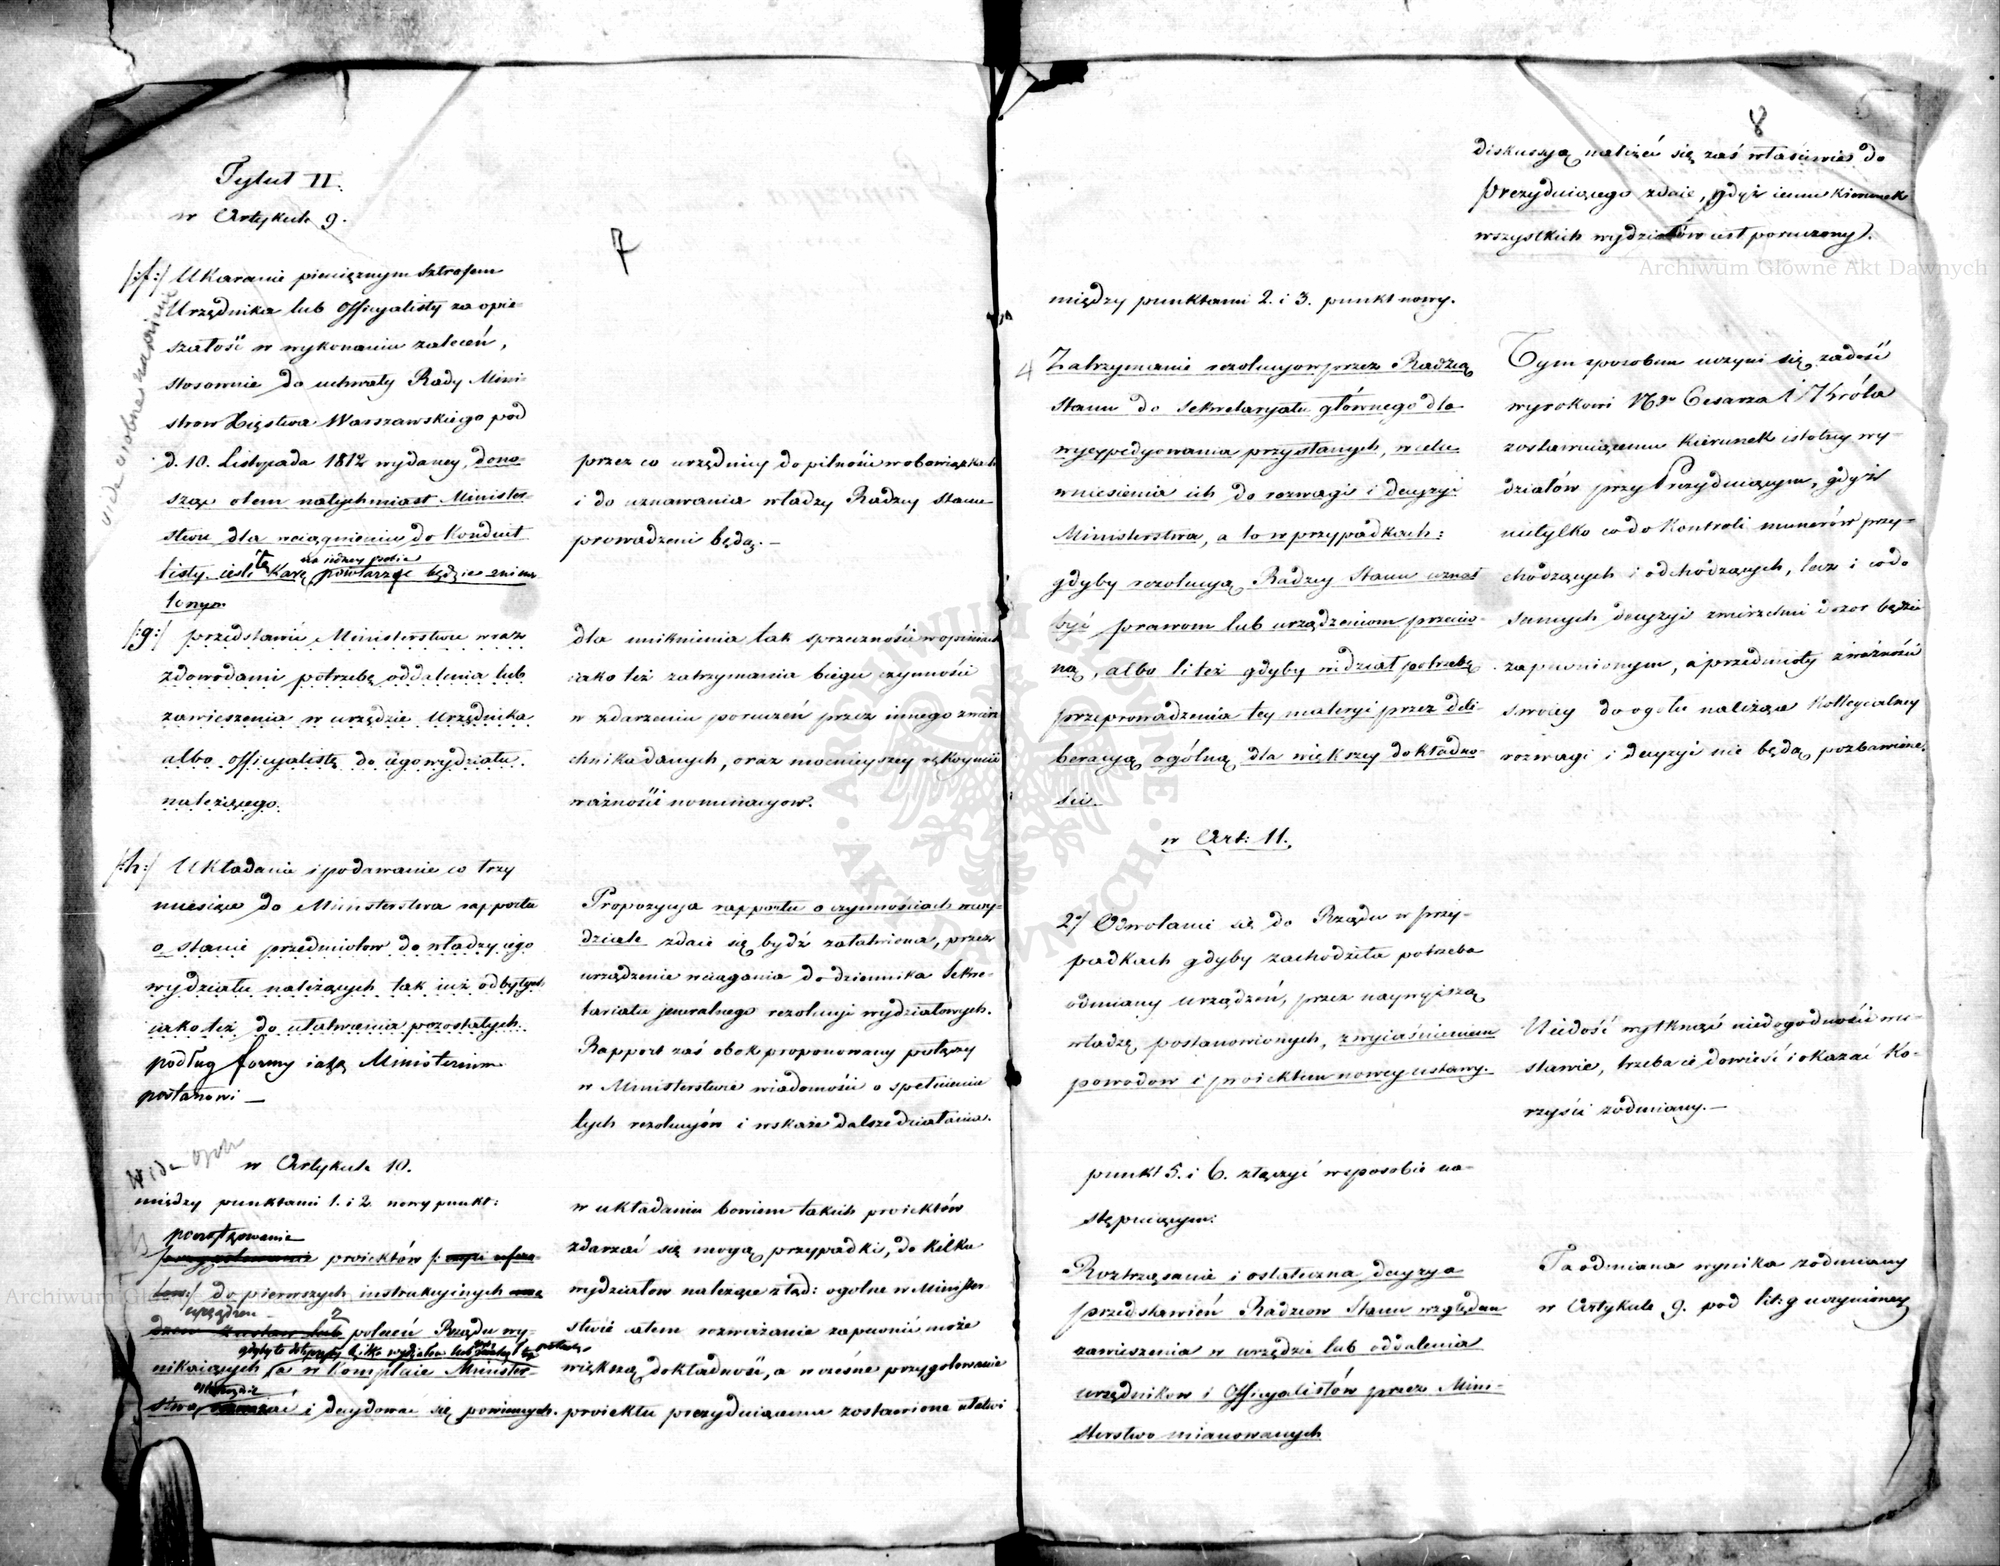 7
Tytuł II.
w Artykule 9.
/:f:/ Ukaranie pieniężnym sztrafem
Urzędnika lub Officyalisty za opie-
szałość w wykonaniu zaleceń,
stosownie do uchwały Rady Mini-
strow Xięstwa Warszawskiego pod
d. 10. Listopada 1812 wydaney, dono-
sząc otem natychmiast Minister-
stwu dla wciągnienia do Konduit
listy, iesli tę Karę powtarzać będzie
/:g:/ przedstawić Ministerstwu wraz
z dowodami potrzebę oddalenia lub
zawieszenia w urzędzie Urzędnika
albo officyalistę do iego wydziału
należącego.
/:h:/ Układanie i podawanie co trzy
miesiące do Ministerstwa rapportu
o stanie przedmiotow do władzy iego
wydziału należących tak iuż odbytych
iako też do ułatwienia pozostałych.
podług formy iaką Ministerium
postanowi —
w Artykule 10.
między punktami 1. i 2 nowy punkt:
proiektów
do pierwszych instrukcyinych
urządzeń
poleceń Rządu wy-
nikaiących a w Komplecie Minister-
stwa i decydować się powinnych.
przez co urzędnicy do pilności w obowiązkach
i do uznawania władzy Radzcy Stanu
prowadzeni będą. —
dla uniknienia tak sprzeczności w opiniach
iako też zatrzymania biegu czynności
w zdarzeniu poruczeń przez innego zwierz-
chnika danych, oraz mocnieyszey rękoymii
ważności nominacyow.
Propozycya rapportu o czynnościach w wy-
dziale zdaie się bydź załatwiona, przez
urządzenie wciągania do dziennika Sekre-
tariatu jeneralnego rezolucyi wydziałowych.
Rapport zaś obok proponowany połączy
w Ministerstwie wiadomości o spełnieniu
tych rezolucyów i wskaże dalsze działania.
w układaniu bowiem takich proiektów
zdarzać się mogą przypadki, do kilku
wydziałow należące ztąd: ogolne w Minister-
stwie onem rozważanie zapewnić może
większą dokładność, a wczesne przygotowanie
proiektu prezyduiącemu zostawione ułatwi
8
diskussyą należeć się zaś właściwie do
Prezyduiącego zdaie, gdyż iemu Kierunek
wszystkich wydziałów iest poruczony.
między punktami 2. i 3. punkt nowy.
4 Zatrzymanie rezolucyow przez Radzcę
Stanu do Sekretaryatu głównego dla
wyexpedyowania przysłanych, w celu
wniesienia ich do rozwagi i decyzyi
Ministerstwa, a to w przypadkach:
gdyby rezolucyą Radzcy Stanu uznał
być prawom lub urządzeniom przeciw-
ną, albo li też gdyby widział potrzebę
przeprowadzenia tey materyi przez deli-
beracyą ogólną dla większey dokładno-
ści.
w Art: 11.
2/ Odwołanie się do Rządu w przy-
padkach gdyby zachodziła potrzeba
odmiany urządzeń, przez naywyższą
władzę postanowionych, z wyiaśnieniem
powodow i proiektem nowey ustawy.
punkt 5. i 6. złączyć w sposobie na-
stępuiącym:
Roztrząsanie i ostateczna decyzya
przedstawień Radzcow Stanu względem
zawieszenia w urzędzie lub oddalenia
urzędnikow i Officyalistów przez Mini-
sterstwo mianowanych
Tym sposobem uczyni się zadość
wyrokowi Cesarza i Króla
zostawuiącemu Kierunek istotny wy-
działów przy Prezyduiącym, gdyż
nietylko co do kontroli numerów przy-
chodzących i odchodzących, lecz i co do
samych decyzyi zwierzchni dozor będzie
zapewnionym, a przedmioty z ważności
swoiey do ogołu należące Kollegialney
rozwagi i decyzyi nie będą pozbawione.
Niedość wytknąć niedogodności w u-
stawie, trzeba ie dowieść i okazać ko-
rzyści z odmiany. —
Ta odmiana wynika z odmiany
w Artykule 9. pod lit: g uczynioney
Archiwum Główne Akt Dawnych
ARCHIWUM GŁÓWNE AKT DAWNYCH